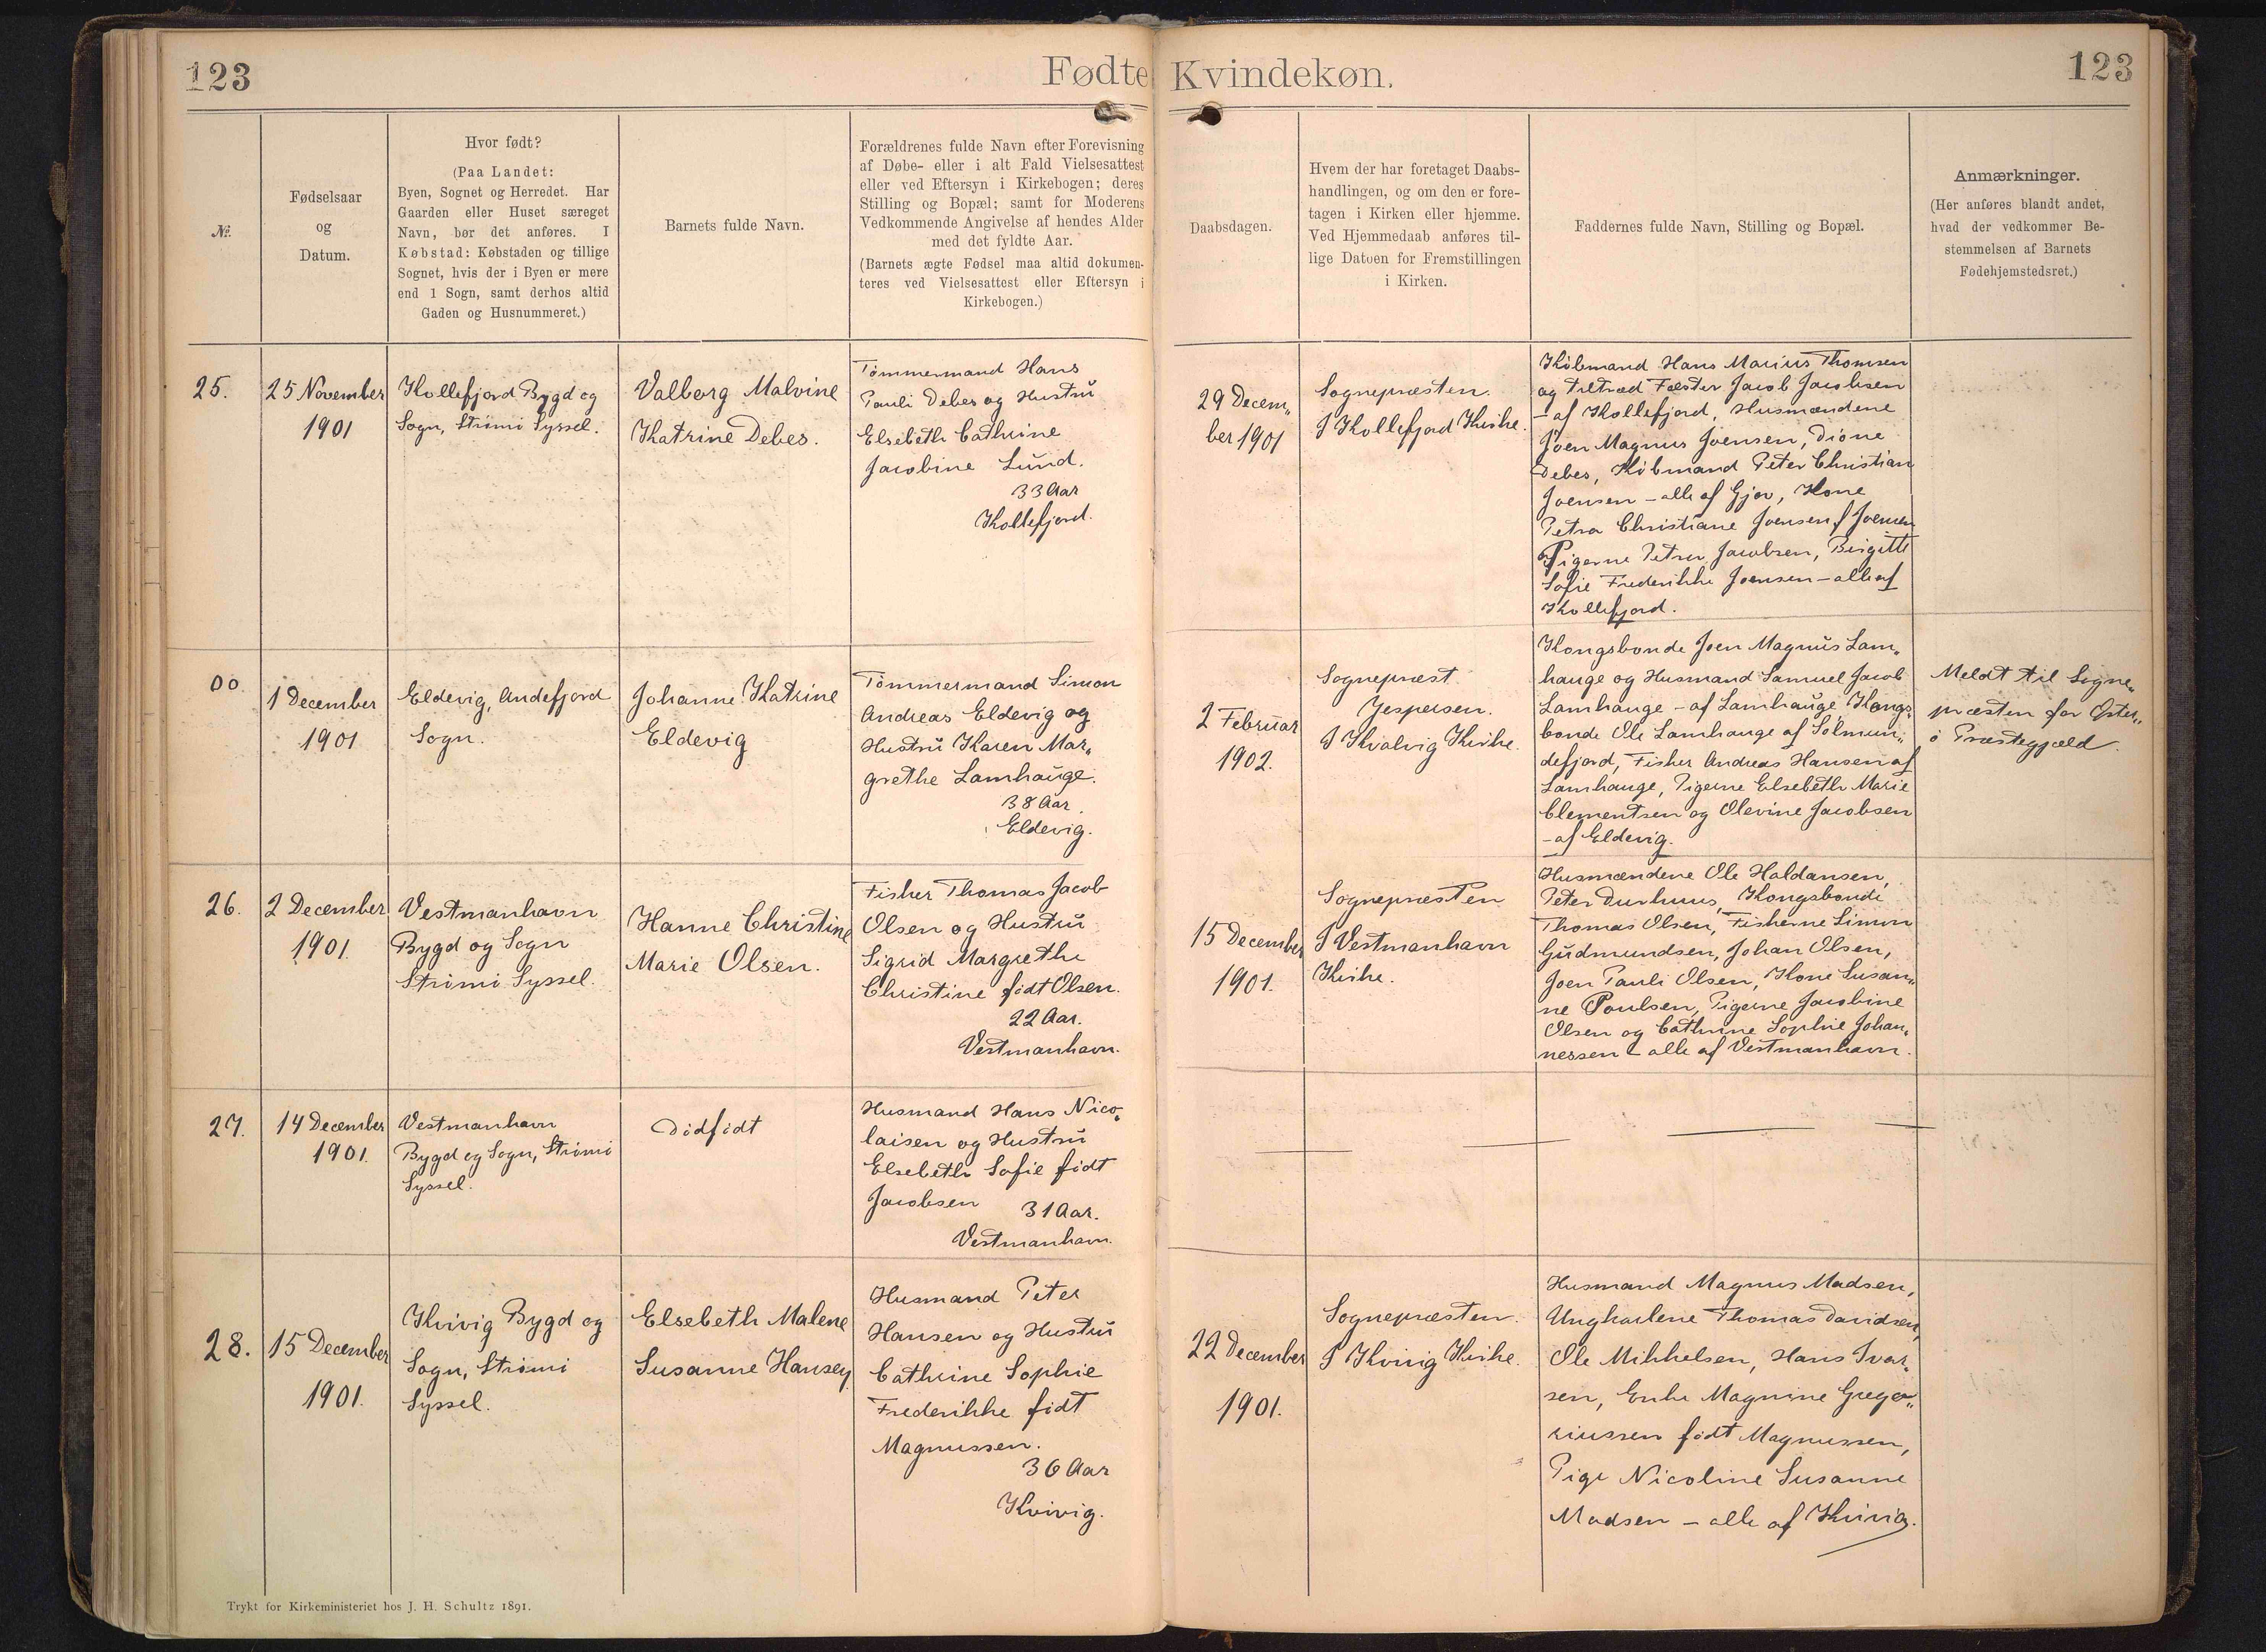 123
Fødte Kvindekøn.
123
№.
Fødselsaar
og
Datum.
Hvor født?
(Paa Landet:
Byen, Sognet og Herredet. Har
Gaarden eller Huset særeget
Navn, bør det anføres. I
Købstad: Købstaden og tillige
Sognet, hvis der i Byen er mere
end 1 Sogn, samt derhos altid
Gaden og Husnummeret.)
Barnets fulde Navn.
Forældrenes fulde Navn efter Forevisning
af Døbe- eller i alt Fald Vielsesattest
eller ved Eftersyn i Kirkebogen; deres
Stilling og Bopæl; samt for Moderens
Vedkommende Angivelse af hendes Alder
med det fyldte Aar.
(Barnets ægte Fødsel maa altid dokumen-
teres ved Vielsesattest eller Eftersyn i
Kirkebogen.)
Daabsdagen.
Hvem der har foretaget Daabs-
handlingen, og om den er fore-
tagen i Kirken eller hjemme.
Ved Hjemmedaab anføres til-
lige Datoen for Fremstillingen
i Kirken.
Faddernes fulde Navn, Stilling og Bopæl.
Anmærkninger.
(Her anføres blandt andet,
hvad der vedkommer Be-
stemmelsen af Barnets
Fødehjemstedsret.)
25.
25 November
1901
Kollefjord Bygd og
Sogn, Strømø Syssel.
Valborg Malvine
Katrine Debes.
Tømmermand Hans
Pauli Debes og Hustru
Elsebeth Cathrine
Jacobine Lund.
33 Aar
Kollefjord.
29 Decem„
ber 1901
Sognepræsten.
I Kollefjord Kirke.
Købmand Hans Marius Thomsen
og Tiltræd Fæster Jacob Jacobsen
- af Kollefjord, Husmændene
Joen Magnus Joensen, Dione
Debes, Købmand Peter Christian
Joensen - alle af Gjov, Kone
Petra Christiane Joensen f Joensen
Pigerne Petra Jacobsen, Birgitte
Sofie Frederikke Joensen - alle af
Kollefjord.
00
1 December
1901
Eldevig, Andefjord
Sogn.
Johanne Katrine
Eldevig
Tømmermand Simon
Andreas Eldevig og
Hustru Karen Mar„
grethe Lamhauge.
38 Aar.
Eldevig.
2 Februar
1902.
Sognepræst
Jespersen.
I Kvalvig Kirke.
Kongsbonde Joen Magnus Lam„
hauge og Husmand Samuel Jacob
Lamhauge - af Lamhauge Kongs„
bonde Ole Lamhauge af Sølmun„
defjord, Fisker Andreas Hansen af
Lamhauge, Pigerne Elsebeth Marie
Clementsen og Olevine Jacobsen
- af Eldevig.
Meldt til Sogne„
præsten for Øster„
ø Præstegjæld.
26.
2 December
1901.
Vestmanhavn
Bygd og Sogn
Strømø Syssel.
Hanne Christine
Marie Olsen.
Fisker Thomas Jacob
Olsen og Hustru
Sigrid Margrethe
Christine født Olsen.
22 Aar.
Vestmanhavn.
15 December
1901.
Sognepræsten
I Vestmanhavn
Kirke.
Husmændene Ole Haldansen,
Peter Durhuus, Kongsbonde
Thomas Olsen, Fiskerne Simon
Gudmundsen, Johan Olsen,
Joen Pauli Olsen, Kone Susan„
ne Poulsen, Pigerne Jacobine
Olsen og Cathrine Sophie Johan„
nessen - alle af Vestmanhavn.
27.
14 December
1901.
Vestmanhavn
Bygd og Sogn, Strømø
Syssel.
Dødfødt
Husmand Hans Nico„
laisen og Hustru
Elsebeth Sofie født
Jacobsen 31 Aar.
Vestmanhavn.
28.
15 December
1901.
Kvivig Bygd og
Sogn, Strømø
Syssel.
Elsebeth Malene
Susanne Hansen
Husmand Peter
Hansen og Hustru
Cathrine Sophie
Frederikke født
Magnussen.
36 Aar
Kvivig.
22 December
1901.
Sognepræsten.
I Kvivig Kirke.
Husmand Magnus Madsen,
Ungkarlene Thomas Davidsen,
Ole Mikkelsen, Hans Ivar„
sen, Enke Magnine Grego„
riussen født Magnussen,
Pige Nicoline Susanne
Madsen - alle af Kvivig.
Trykt for Kirkeministeriet hos J. H. Schultz 1891.